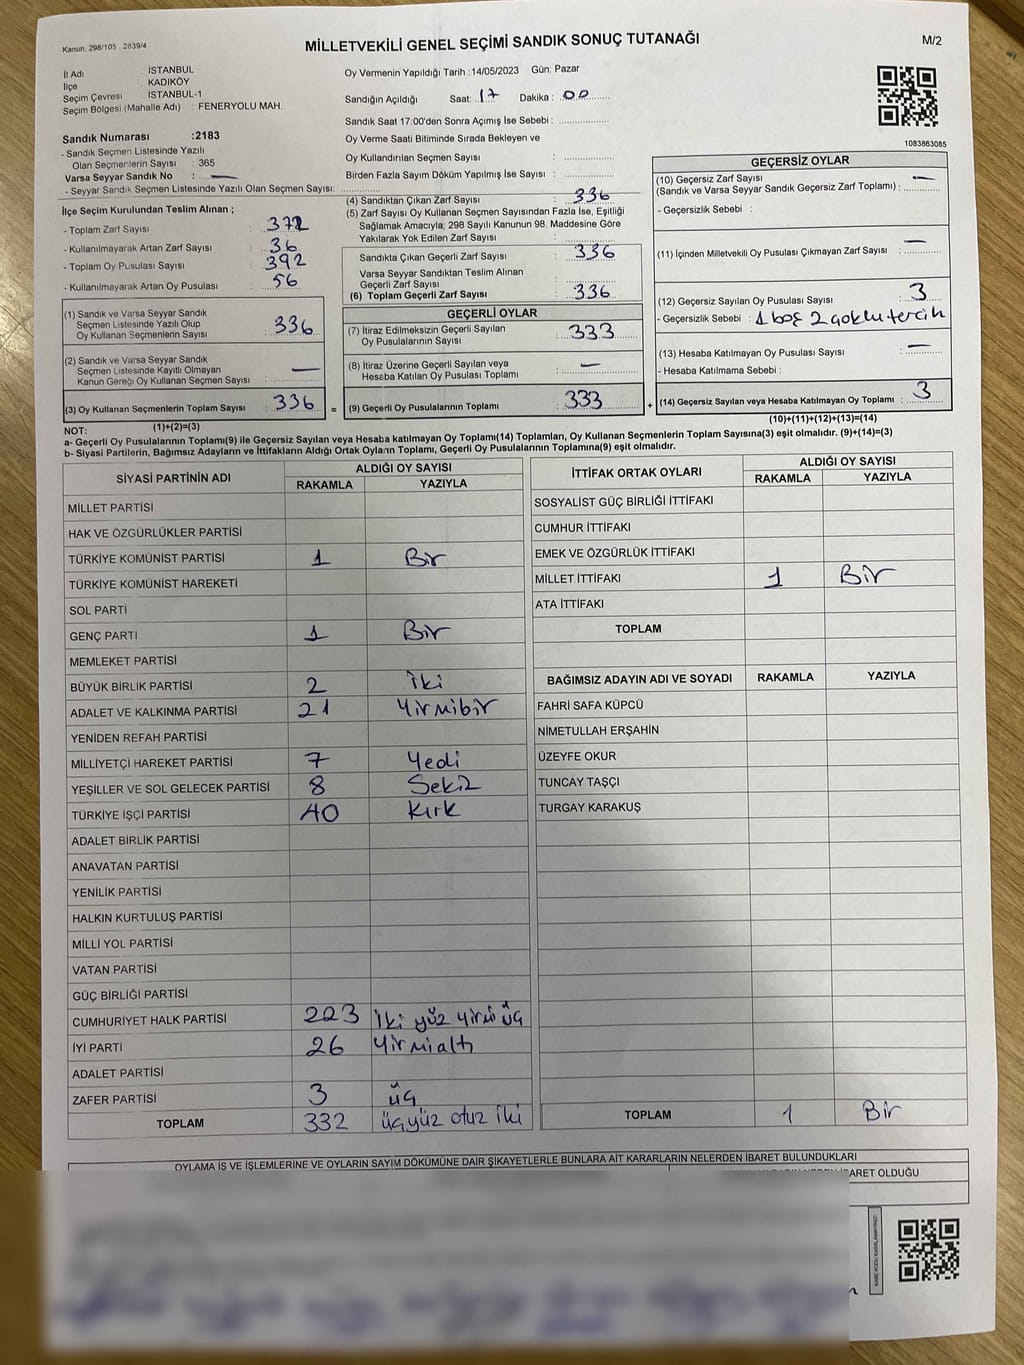 Kanun. 298/105 . 2839/4
MİLLETVEKİLİ GENEL SEÇİMİ SANDIK SONUÇ TUTANAĞI
M/2
İl Adı : İSTANBUL
İlçe KADIKÖY
Seçim Çevresi İSTANBUL-1
Seçim Bölgesi (Mahalle Adı) : FENERYOLU MAH.
Oy Vermenin Yapıldığı Tarih :14/05/2023 Gün: Pazar
Sandığın Açıldığı Saat: 17 Dakika : 00
Sandık Saat 17:00'den Sonra Açımış İse Sebebi :
Oy Verme Saati Bitiminde Sırada Bekleyen ve
Oy Kullandırılan Seçmen Sayısı :
Birden Fazla Sayım Döküm Yapılmış İse Sayısı :
1083863085
Sandık Numarası :2183
- Sandık Seçmen Listesinde Yazılı
Olan Seçmenlerin Sayısı : 365
Varsa Seyyar Sandık No : —
- Seyyar Sandık Seçmen Listesinde Yazılı Olan Seçmen Sayısı:
İlçe Seçim Kurulundan Teslim Alınan ;
- Toplam Zarf Sayısı : 372
- Kullanılmayarak Artan Zarf Sayısı : 36
- Toplam Oy Pusulası Sayısı : 392
- Kullanılmayarak Artan Oy Pusulası : 56
(1) Sandık ve Varsa Seyyar Sandık
Seçmen Listesinde Yazılı Olup
Oy Kullanan Seçmenlerin Sayısı : 336
(2) Sandık ve Varsa Seyyar Sandık
Seçmen Listesinde Kayıtlı Olmayan
Kanun Gereği Oy Kullanan Seçmen Sayısı : —
(3) Oy Kullanan Seçmenlerin Toplam Sayısı : 336
(1)+(2)=(3)
(4) Sandıktan Çıkan Zarf Sayısı : 336
(5) Zarf Sayısı Oy Kullanan Seçmen Sayısından Fazla İse, Eşitliği
Sağlamak Amacıyla; 298 Sayılı Kanunun 98. Maddesine Göre
Yakılarak Yok Edilen Zarf Sayısı :
Sandıkta Çıkan Geçerli Zarf Sayısı : 336
Varsa Seyyar Sandıktan Teslim Alınan
Geçerli Zarf Sayısı :
(6) Toplam Geçerli Zarf Sayısı : 336
GEÇERLİ OYLAR
(7) İtiraz Edilmeksizin Geçerli Sayılan
Oy Pusulalarının Sayısı : 333
(8) İtiraz Üzerine Geçerli Sayılan veya
Hesaba Katılan Oy Pusulası Toplamı : —
= (9) Geçerli Oy Pusulalarının Toplamı : 333
GEÇERSİZ OYLAR
(10) Geçersiz Zarf Sayısı —
(Sandık ve Varsa Seyyar Sandık Geçersiz Zarf Toplamı) :
- Geçersizlik Sebebi :
(11) İçinden Milletvekili Oy Pusulası Çıkmayan Zarf Sayısı : —
(12) Geçersiz Sayılan Oy Pusulası Sayısı : 3
- Geçersizlik Sebebi : 1 boş 2 çoklu tercih
(13) Hesaba Katılmayan Oy Pusulası Sayısı : —
- Hesaba Katılmama Sebebi :
+ (14) Geçersiz Sayılan veya Hesaba Katılmayan Oy Toplamı : 3
(10)+(11)+(12)+(13)=(14)
NOT:
a- Geçerli Oy Pusulalarının Toplamı(9) ile Geçersiz Sayılan veya Hesaba katılmayan Oy Toplamı(14) Toplamları, Oy Kullanan Seçmenlerin Toplam Sayısına(3) eşit olmalıdır. (9)+(14)=(3)
b- Siyasi Partilerin, Bağımsız Adayların ve İttifakların Aldığı Ortak Oyların Toplamı, Geçerli Oy Pusulalarının Toplamına(9) eşit olmalıdır.
SİYASİ PARTİNİN ADI ALDIĞI OY SAYISI
RAKAMLA YAZIYLA
MİLLET PARTİSİ
HAK VE ÖZGÜRLÜKLER PARTİSİ
TÜRKİYE KOMÜNİST PARTİSİ 1 Bir
TÜRKİYE KOMÜNİST HAREKETİ
SOL PARTİ
GENÇ PARTİ 1 Bir
MEMLEKET PARTİSİ
BÜYÜK BİRLİK PARTİSİ 2 İki
ADALET VE KALKINMA PARTİSİ 21 Yirmibir
YENİDEN REFAH PARTİSİ
MİLLİYETÇİ HAREKET PARTİSİ 7 Yedi
YEŞİLLER VE SOL GELECEK PARTİSİ 8 Sekiz
TÜRKİYE İŞÇİ PARTİSİ 40 Kırk
ADALET BİRLİK PARTİSİ
ANAVATAN PARTİSİ
YENİLİK PARTİSİ
HALKIN KURTULUŞ PARTİSİ
MİLLİ YOL PARTİSİ
VATAN PARTİSİ
GÜÇ BİRLİĞİ PARTİSİ
CUMHURİYET HALK PARTİSİ 223 İki yüz yirmi üç
İYİ PARTİ 26 Yirmialtı
ADALET PARTİSİ
ZAFER PARTİSİ 3 üç
TOPLAM 332 üçyüz otuz iki
İTTİFAK ORTAK OYLARI ALDIĞI OY SAYISI
RAKAMLA YAZIYLA
SOSYALİST GÜÇ BİRLİĞİ İTTİFAKI
CUMHUR İTTİFAKI
EMEK VE ÖZGÜRLÜK İTTİFAKI
MİLLET İTTİFAKI 1 Bir
ATA İTTİFAKI
TOPLAM
BAĞIMSIZ ADAYIN ADI VE SOYADI RAKAMLA YAZIYLA
FAHRİ SAFA KÜPCÜ
NİMETULLAH ERŞAHİN
ÜZEYFE OKUR
TUNCAY TAŞÇI
TURGAY KARAKUŞ
TOPLAM 1 Bir
OYLAMA İŞ VE İŞLEMLERİNE VE OYLARIN SAYIM DÖKÜMÜNE DAİR ŞİKAYETLERLE BUNLARA AİT KARARLARIN NELERDEN İBARET BULUNDUKLARI
BARET OLDUĞU